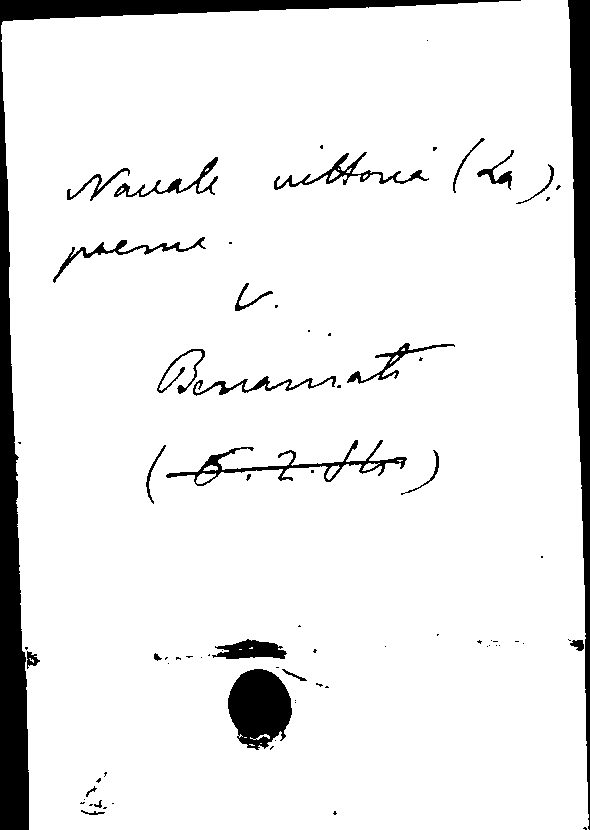 Navale vittoria (La).
poema.
V.
Benamati
(
)